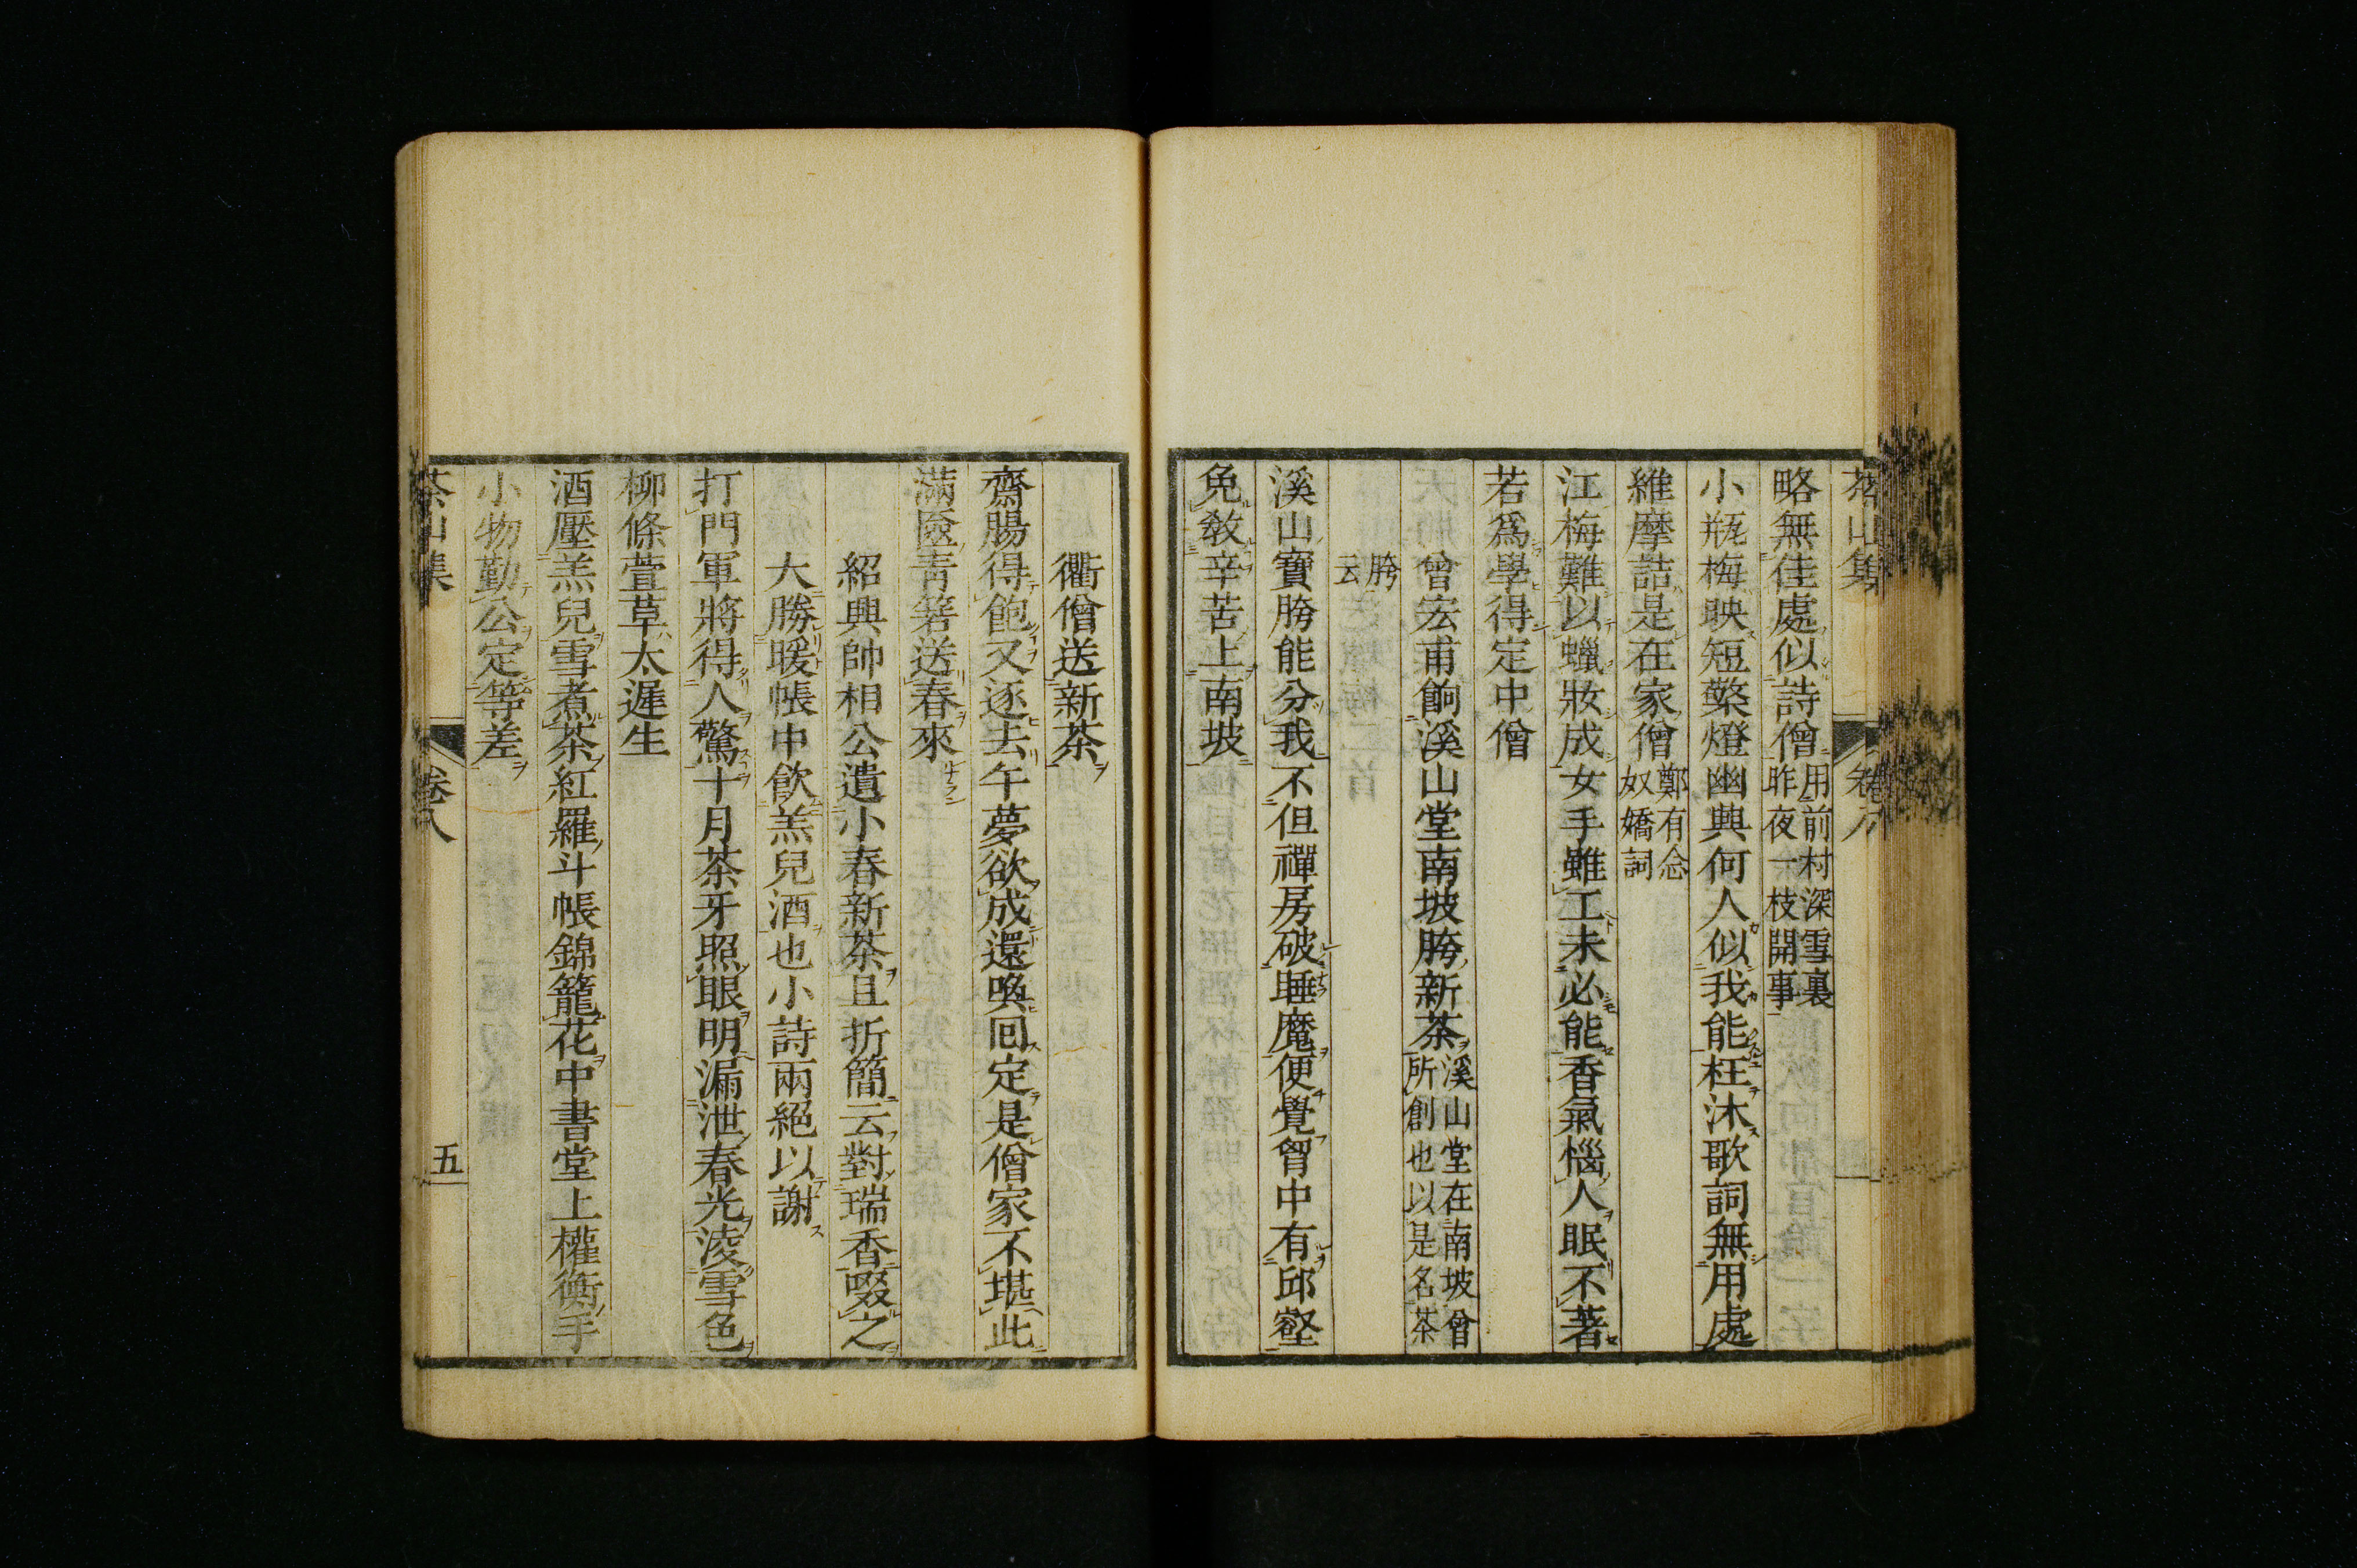 茶山集 卷八
略無佳處似詩僧用前村深雪裏昨夜一枝開事
小瓶梅映短檠燈幽興何人似我能枉沐歌詞無用處
維摩詰是在家僧鄭有念奴嬌詞
江梅難以蠟妝成女手雖工未必能香氣惱人眠不著
若爲學得定中僧
曾宏甫餉溪山堂南坡胯新茶溪山堂在南坡曾所創也以是名茶
胯云
溪山寶胯能分我不但禪房破睡魔便覺胷中有邱壑
免敎辛苦上南坡
衢僧送新茶
齋腸得飽又逐去午夢欲成還喚回定是僧家不堪此
滿奩靑箬送春來
紹興帥相公遺小春新茶且折簡云對瑞香啜之
大勝暖帳中飮羔兒酒也小詩兩絕以謝
打門軍將得人驚十月茶牙照眼明漏泄春光淩雪色
柳條萱草太遲生
酒壓羔兒雪煮茶紅羅斗帳錦籠花中書堂上權衡手
小物勤公定等差
茶山集 卷八 五